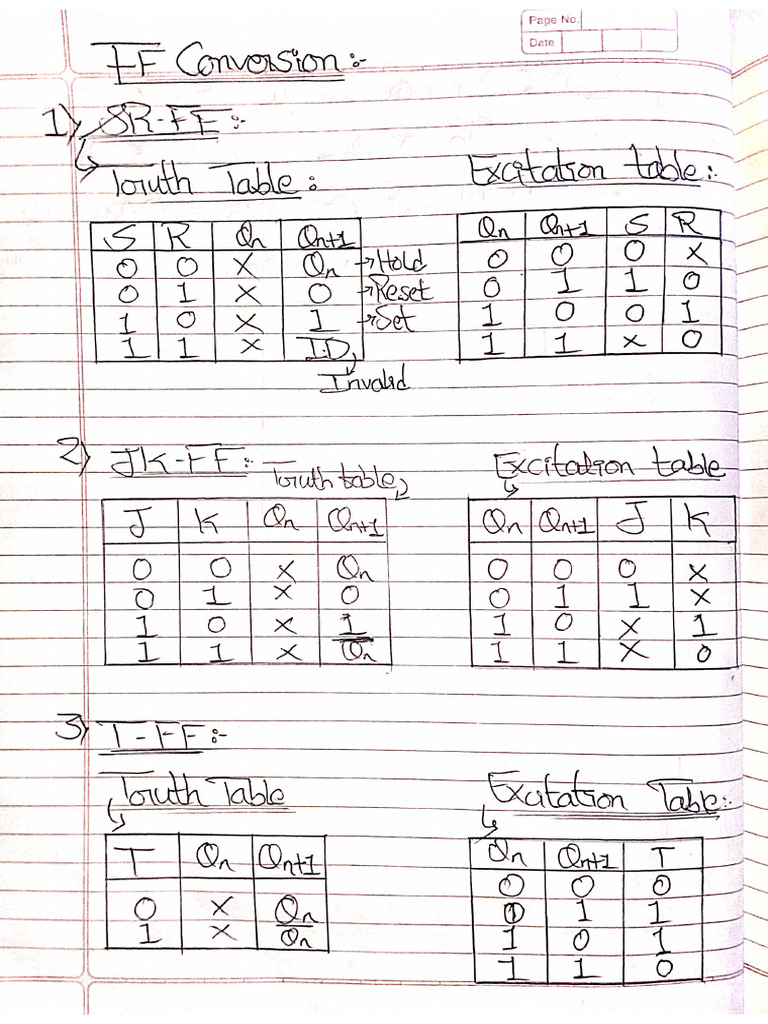 Page No.
Date
FF Conversion:-
1) SR-FF:-
Truth Table: Excitation table:-
S R Qn Qn+1 Qn Qn+1 S R
0 0 X Qn →Hold 0 0 0 X
0 1 X 0 →Reset 0 1 1 0
1 0 X 1 →Set 1 0 0 1
1 1 X I.D, 1 1 X 0
Invalid
2) JK-FF:- Truth table Excitation table
J K Qn Qn+1 Qn Qn+1 J K
0 0 X Qn 0 0 0 X
0 1 X 0 0 1 1 X
1 0 X 1 1 0 X 1
1 1 X Q̅n 1 1 X 0
3) T-FF:-
Truth Table Excitation Table:-
T Qn Qn+1 Qn Qn+1 T
0 0 0
0 X Qn 0 1 1
1 X Q̅n 1 0 1
1 1 0